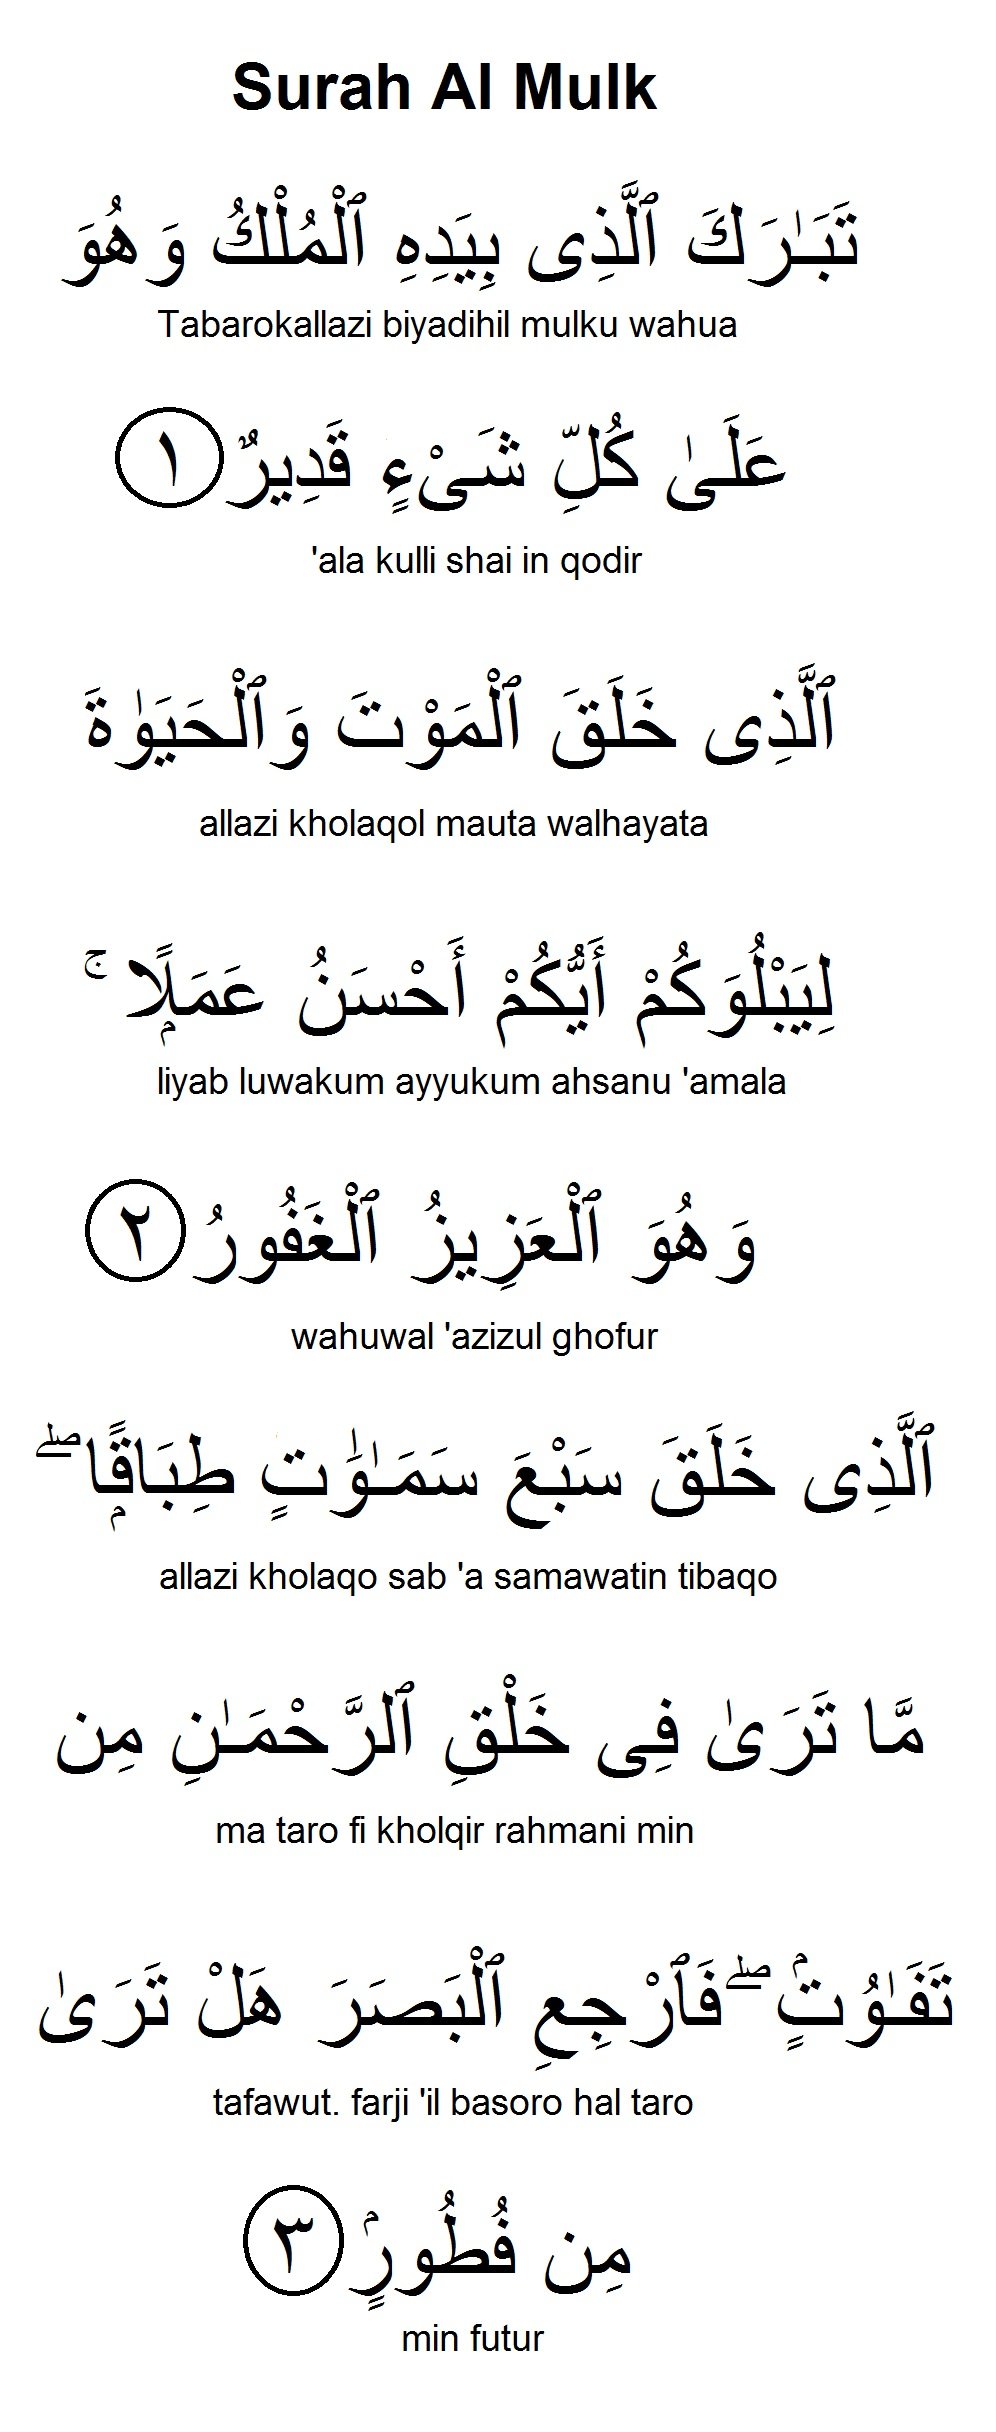 Surah Al Mulk
تَبَـٰرَكَ ٱلَّذِى بِيَدِهِ ٱلْمُلْكُ وَهُوَ
Tabarokallazi biyadihil mulku wahua
عَلَىٰ كُلِّ شَىْءٍ قَدِيرٌ ١
'ala kulli shai in qodir
ٱلَّذِى خَلَقَ ٱلْمَوْتَ وَٱلْحَيَوٰةَ
allazi kholaqol mauta walhayata
لِيَبْلُوَكُمْ أَيُّكُمْ أَحْسَنُ عَمَلًۭا ۚ
liyab luwakum ayyukum ahsanu 'amala
وَهُوَ ٱلْعَزِيزُ ٱلْغَفُورُ ٢
wahuwal 'azizul ghofur
ٱلَّذِى خَلَقَ سَبْعَ سَمَـٰوَٰتٍ طِبَاقًۭا ۖ
allazi kholaqo sab 'a samawatin tibaqo
مَّا تَرَىٰ فِى خَلْقِ ٱلرَّحْمَـٰنِ مِن
ma taro fi kholqir rahmani min
تَفَـٰوُتٍۢ ۖ فَٱرْجِعِ ٱلْبَصَرَ هَلْ تَرَىٰ
tafawut. farji 'il basoro hal taro
مِن فُطُورٍۢ ٣
min futur